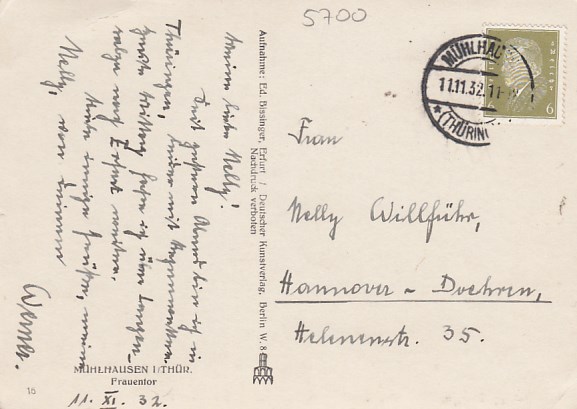 5700
MÜHLHAU
11.11.32. 11-
* (THÜRIN
6
Frau
Nelly Willführ,
Hannover - Doehren,
Helenenstr. 35.
Aufnahme: Ed. Bissinger, Erfurt / Deutscher Kunstverlag, Berlin W. 8
Nachdruck verboten
Meine liebe Nelly!
Seit gestern Abend bin ich in
Thüringen, leider mit Regenwetter.
Heute Mittag fahre ich über Langen-
salza nach Erfurt weiter.
Viele innige Grüße, meine
Nelly, von Deinem
Werner.
MÜHLHAUSEN I/THÜR.
Frauentor
11. XI. 32.
18